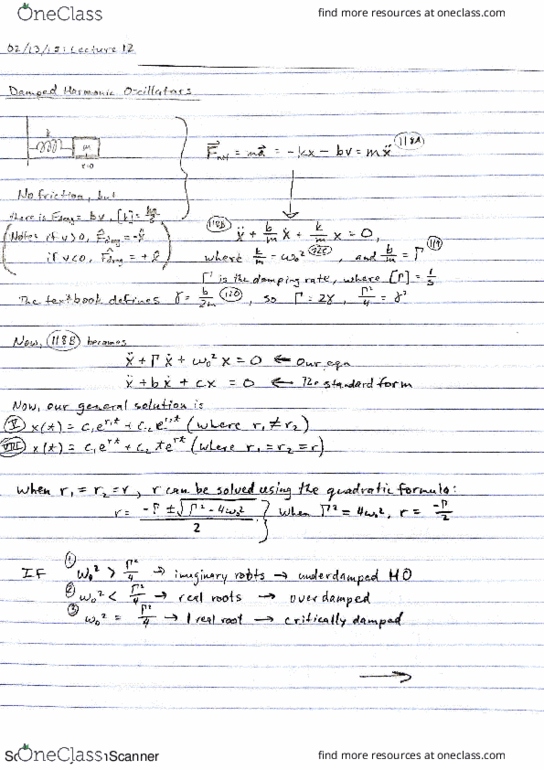 OneClass
find more resources at oneclass.com
02/13/15: Lecture 12
Damped Harmonic Oscillators
k
m
x=0
F⃗net = ma⃗ = -kx - bv = mẍ (118A)
No friction, but
there is Fdrag = bv, [b] = kg/s
(Note: if v>0, F̂drag = -x̂
if v<0, F̂drag = +x̂)
(118B) ẍ + b/m ẋ + k/m x = 0,
where k/m = ω₀², and b/m = Γ (119)
Γ is the damping rate, where [Γ] = 1/s
The textbook defines γ = b/2m (120), so Γ = 2γ, Γ²/4 = γ²
Now, (118B) becomes
ẍ + Γẋ + ω₀²x = 0 ← Our eqn
ẍ + bẋ + cx = 0 ← The standard form
Now, our general solution is
(V) x(t) = c₁e^{r₁t} + c₂e^{r₂t} (where r₁ ≠ r₂)
(VIII) x(t) = c₁e^{rt} + c₂te^{rt} (where r₁ = r₂ = r)
When r₁ = r₂ = r, r can be solved using the quadratic formula:
r = (-Γ ± √(Γ² - 4ω₀²)) / 2 } When Γ² = 4ω₀², r = -Γ/2
IF ① ω₀² > Γ²/4 → imaginary roots → underdamped HO
② ω₀² < Γ²/4 → real roots → overdamped
③ ω₀² = Γ²/4 → 1 real root → critically damped
→
OneClass
Scanner
find more resources at oneclass.com